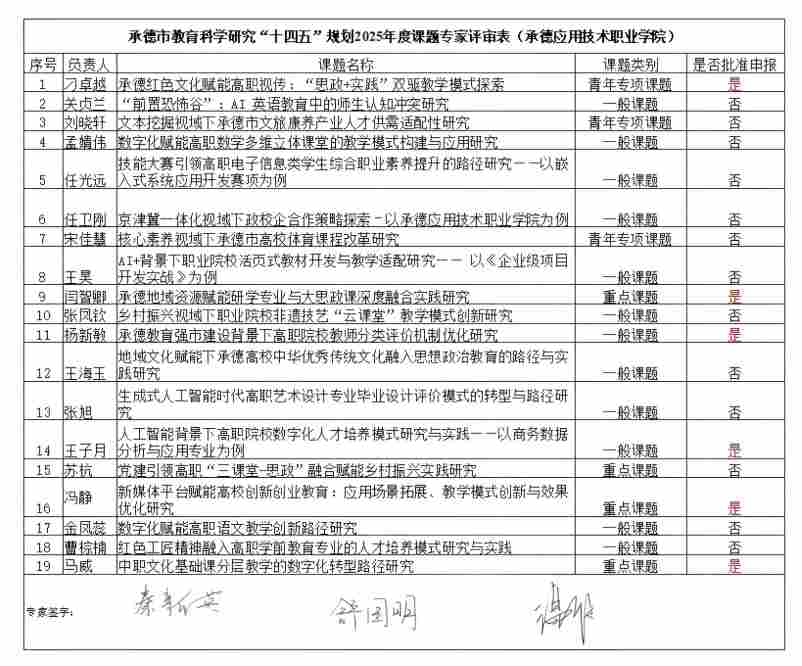 承德市教育科学研究“十四五”规划2025年度课题专家评审表（承德应用技术职业学院）
序号 负责人 课题名称 课题类别 是否批准申报
1 刁卓越 承德红色文化赋能高职视传：“思政+实践”双驱教学模式探索 青年专项课题 是
2 关贞兰 “前置恐怖谷”：AI 英语教育中的师生认知冲突研究 一般课题 否
3 刘晓轩 文本挖掘视域下承德市文旅康养产业人才供需适配性研究 青年专项课题 否
4 孟婧伟 数字化赋能高职数学多维立体课堂的教学模式构建与应用研究 一般课题 否
技能大赛引领高职电子信息类学生综合职业素养提升的路径研究——以嵌
5 任光远 入式系统应用开发赛项为例 一般课题 否
6 任卫刚 京津冀一体化视域下政校企合作策略探索-以承德应用技术职业学院为例 一般课题 否
7 宋佳慧 核心素养视域下承德市高校体育课程改革研究 青年专项课题 否
AI+背景下职业院校活页式教材开发与教学适配研究—— 以《企业级项目
8 王昊 开发实战》为例 一般课题 否
9 闫智卿 承德地域资源赋能研学专业与大思政课深度融合实践研究 重点课题 是
10 张凤钦 乡村振兴视域下职业院校非遗技艺“云课堂”教学模式创新研究 一般课题 否
11 杨新敏 承德教育强市建设背景下高职院校教师分类评价机制优化研究 一般课题 是
地域文化赋能下承德高校中华优秀传统文化融入思想政治教育的路径与实
12 王海玉 践研究 一般课题 否
生成式人工智能时代高职艺术设计专业毕业设计评价模式的转型与路径研
13 张旭 究 一般课题 否
人工智能背景下高职院校数字化人才培养模式研究与实践——以商务数据
14 王子月 分析与应用专业为例 一般课题 是
15 苏杭 党建引领高职“三课堂-思政”融合赋能乡村振兴实践研究 重点课题 否
新媒体平台赋能高校创新创业教育：应用场景拓展、教学模式创新与效果
16 冯静 优化研究 重点课题 是
17 金凤蕊 数字化赋能高职语文教学创新路径研究 一般课题 否
18 曹棕楠 红色工匠精神融入高职学前教育专业的人才培养模式研究与实践 一般课题 否
19 马威 中职文化基础课分层教学的数字化转型路径研究 重点课题 是
专家签字： 舒国明